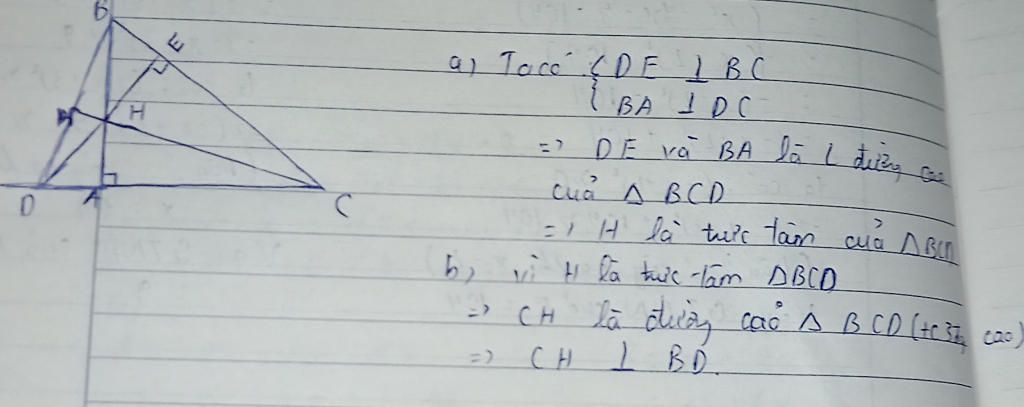 B
E
H
D A C
a) Ta có { DE ⊥ BC
{ BA ⊥ DC
=> DE và BA là 2 đường cao
của Δ BCD
=> H là trực tâm của ΔBCD
b) vì H là trực tâm ΔBCD
=> CH là đường cao Δ BCD (+c 3 đg cao)
=> CH ⊥ BD.